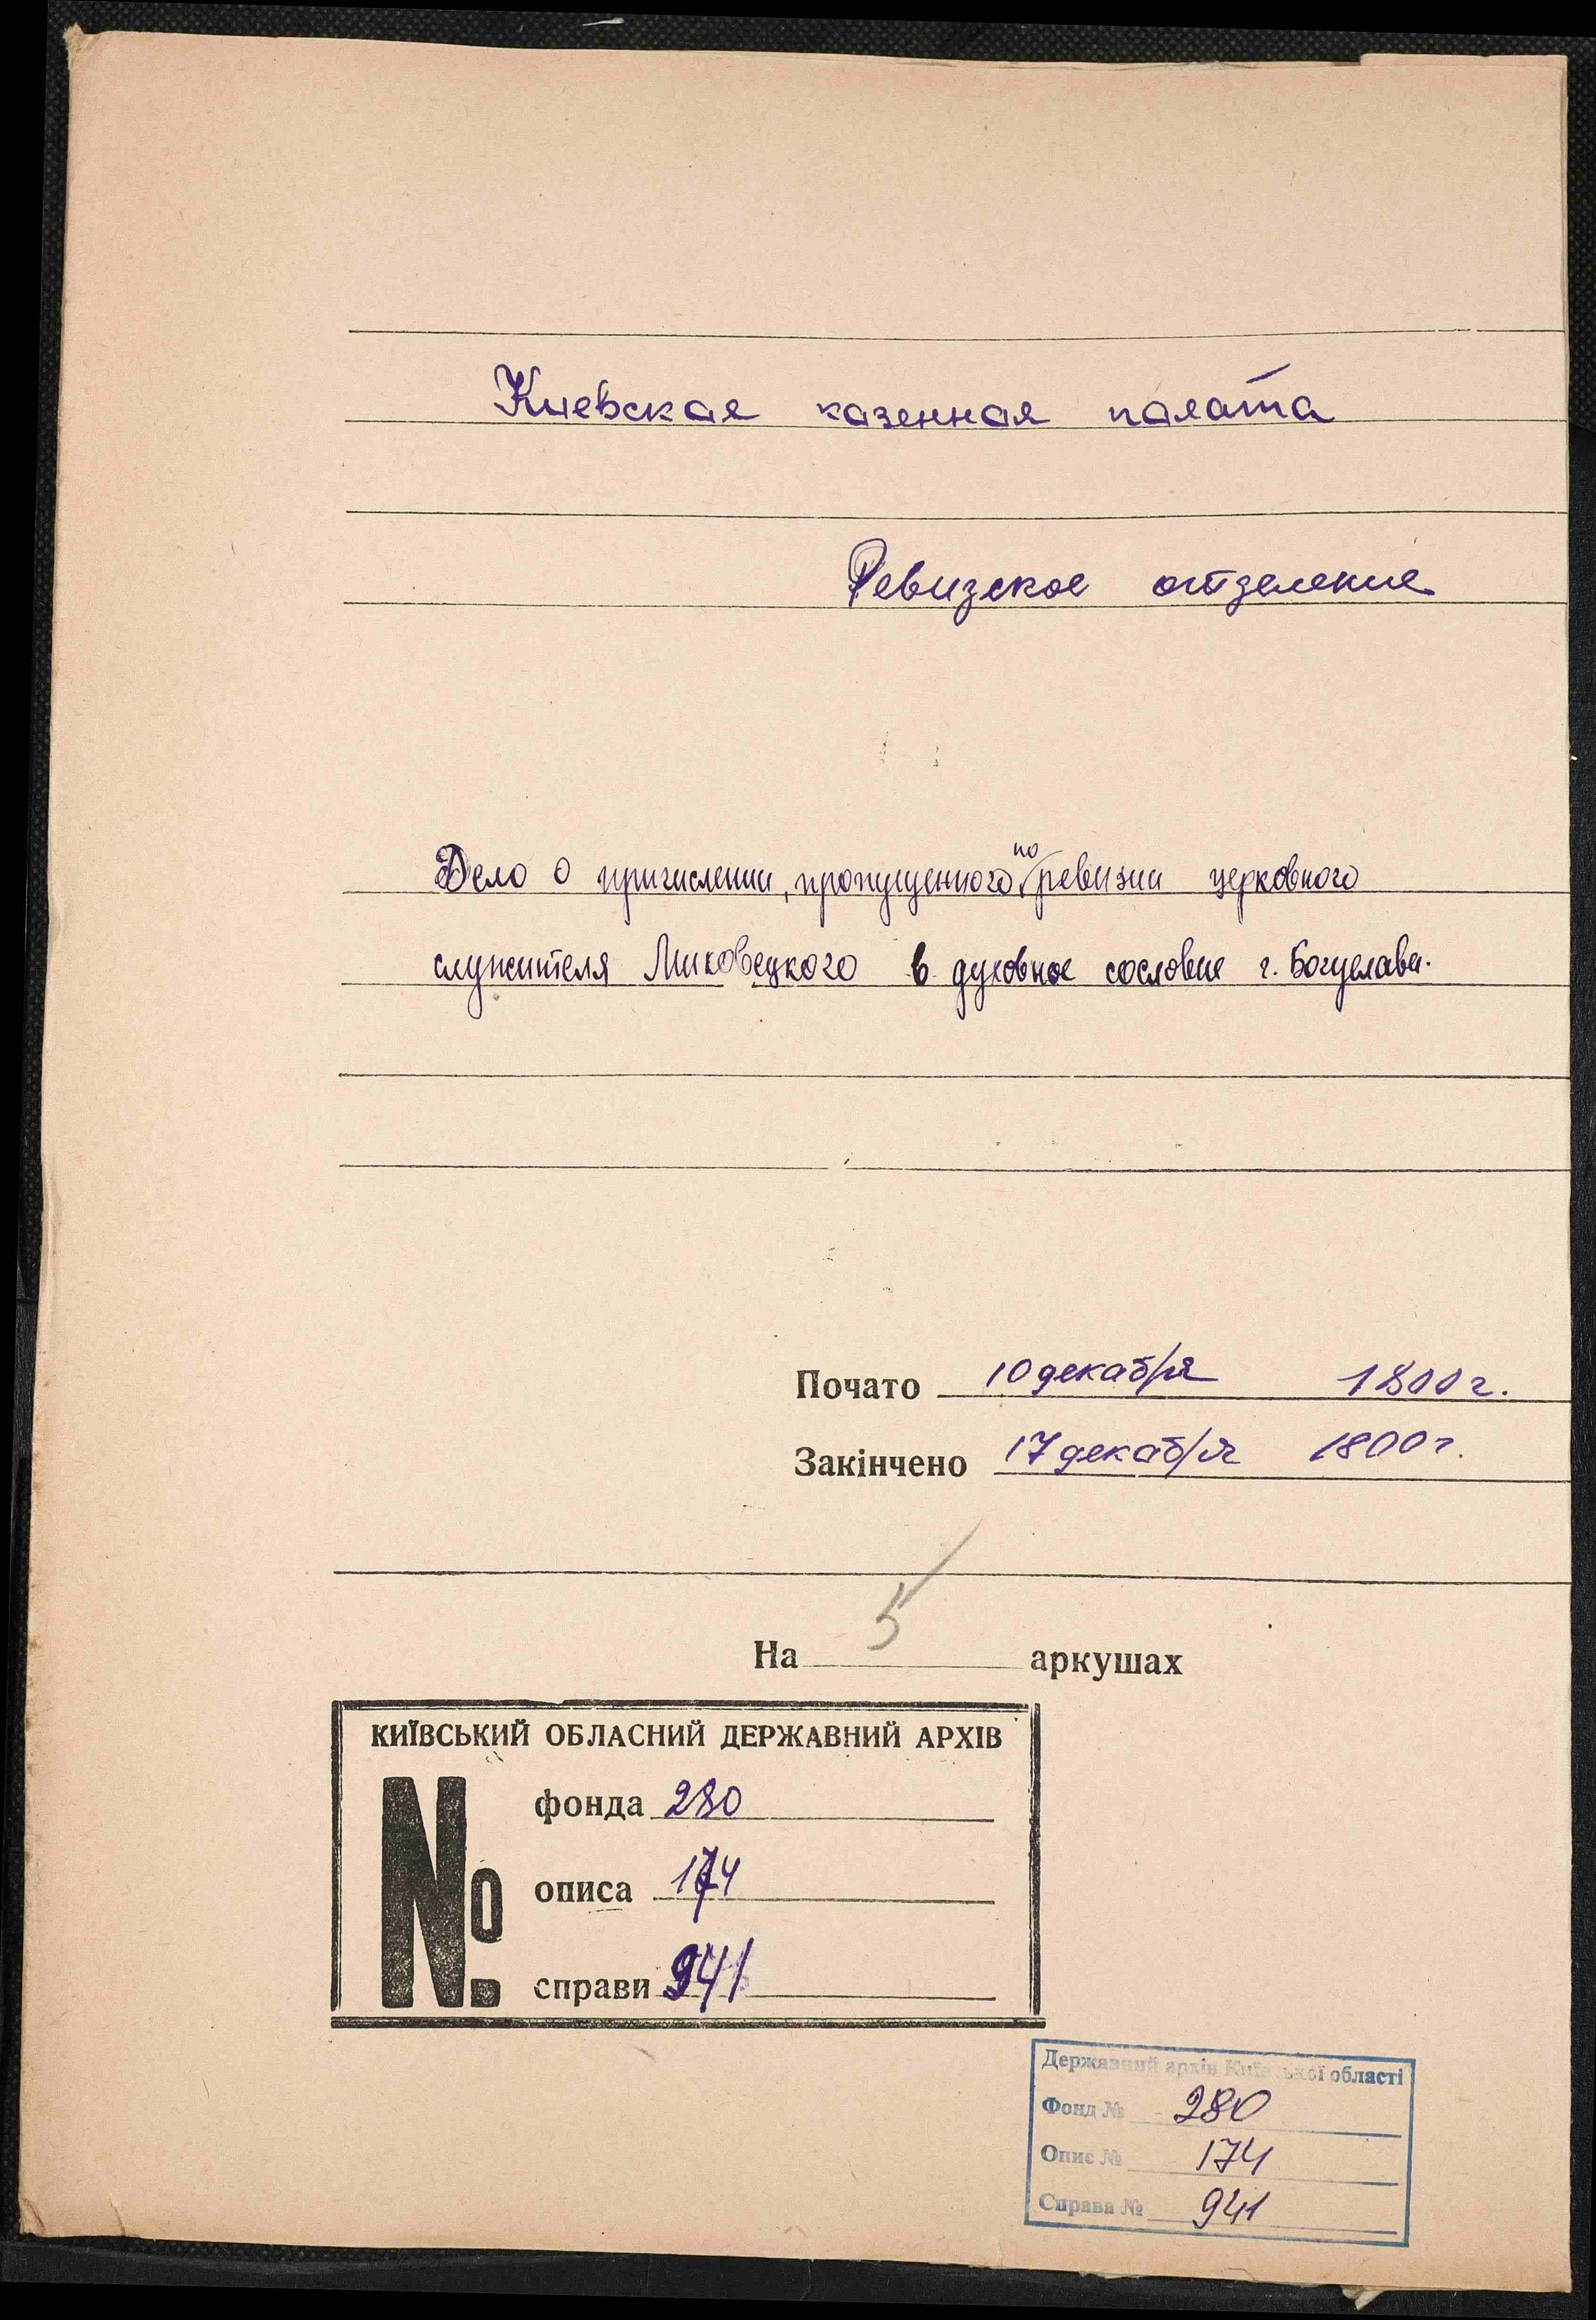 Киевская казенная палата
Ревизское отделение
Дело о причислении, пропущенного по ревизии церковного
служителя Миковецкого в духовное сословие г. Богуслава.
Почато 10 декабря 1800 г.
Закінчено 17 декабря 1800 г.
На 5 аркушах
КИЇВСЬКИЙ ОБЛАСНИЙ ДЕРЖАВНИЙ АРХІВ
№
фонда 280
описа 174
справи 941
Державний архів Київської області
Фонд № 280
Опис № 174
Справа № 941